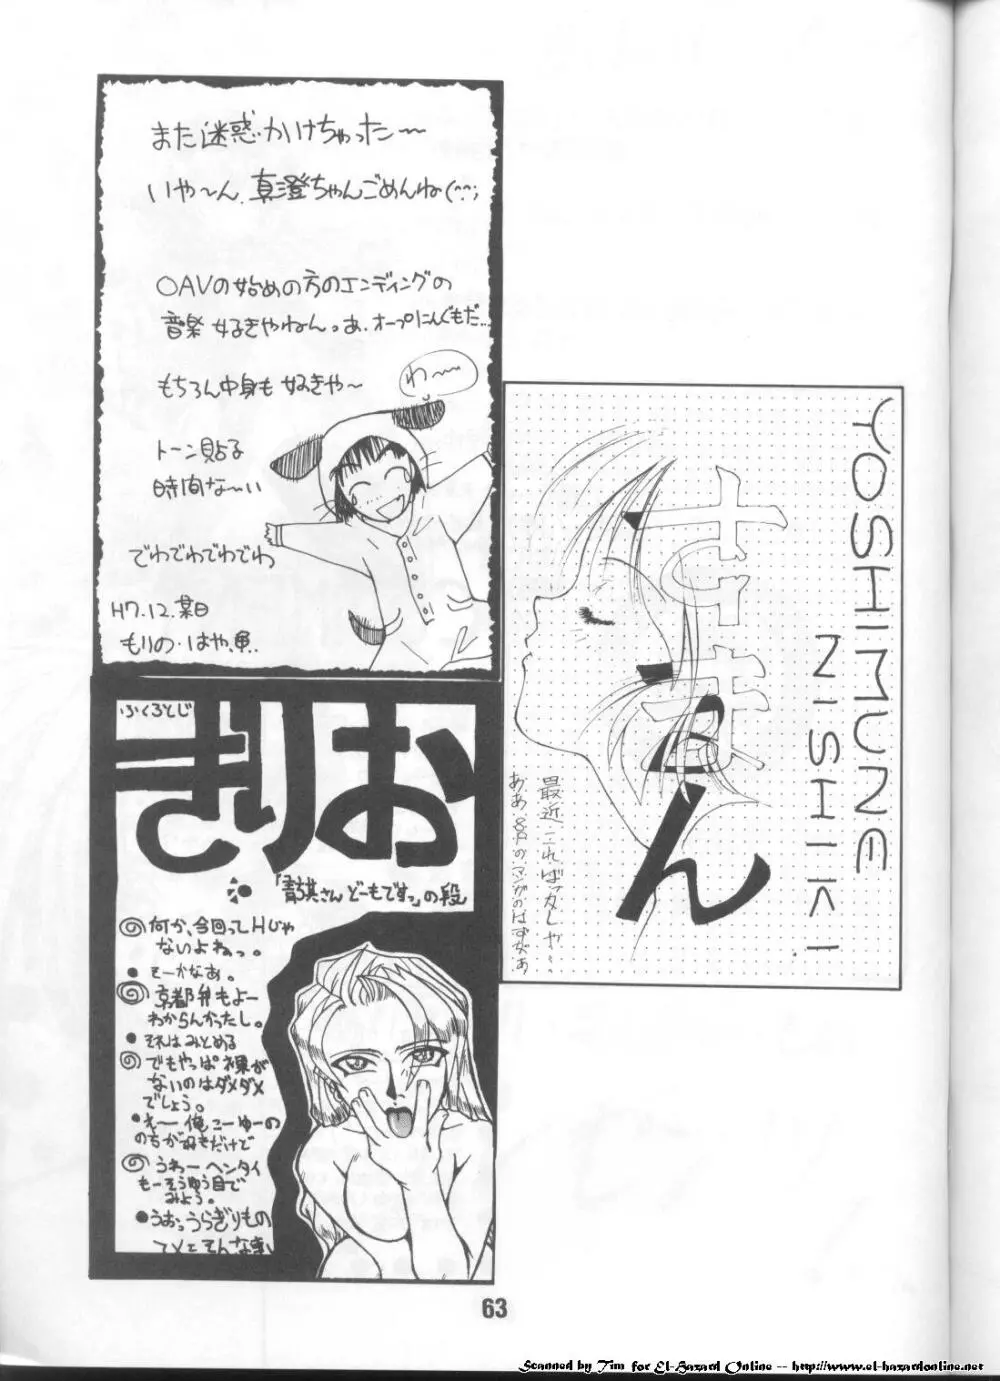 また迷惑かけちゃった〜
いや〜ん、真澄ちゃんごめんね(^^;
OAVの始めの方のエンディングの
音楽 好きやねん。あ、オープにんぐもだ…
もちろん中身も 好きや〜
わ〜〜
トーン貼る
時間な〜い
でわでわでわでわ
H7.12.某日
もりの・はや
YOSHIMUNE
NISHIKI
最近こればッカしや〜。
ああ 8Pのマンガのはずがぁ
ふくろとじ
おりき
「さん どーもですっ」の段
何か、今回ってHじゃ
ないよねっ。
● そーかなあ。
京都弁もよー
わからんかったし。
● それはみとめる
でもやっぱ裸が
ないのはダメダメ
でしょう。
●え〜俺こーゆーの
のちが好きだけど
うわーヘンタイ
もーそうゆう目で
みよう。
●うおっうらぎりもの
そんな事
63
Scanned by Tim for El-Hazard Online -- http://www.el-hazardonline.net